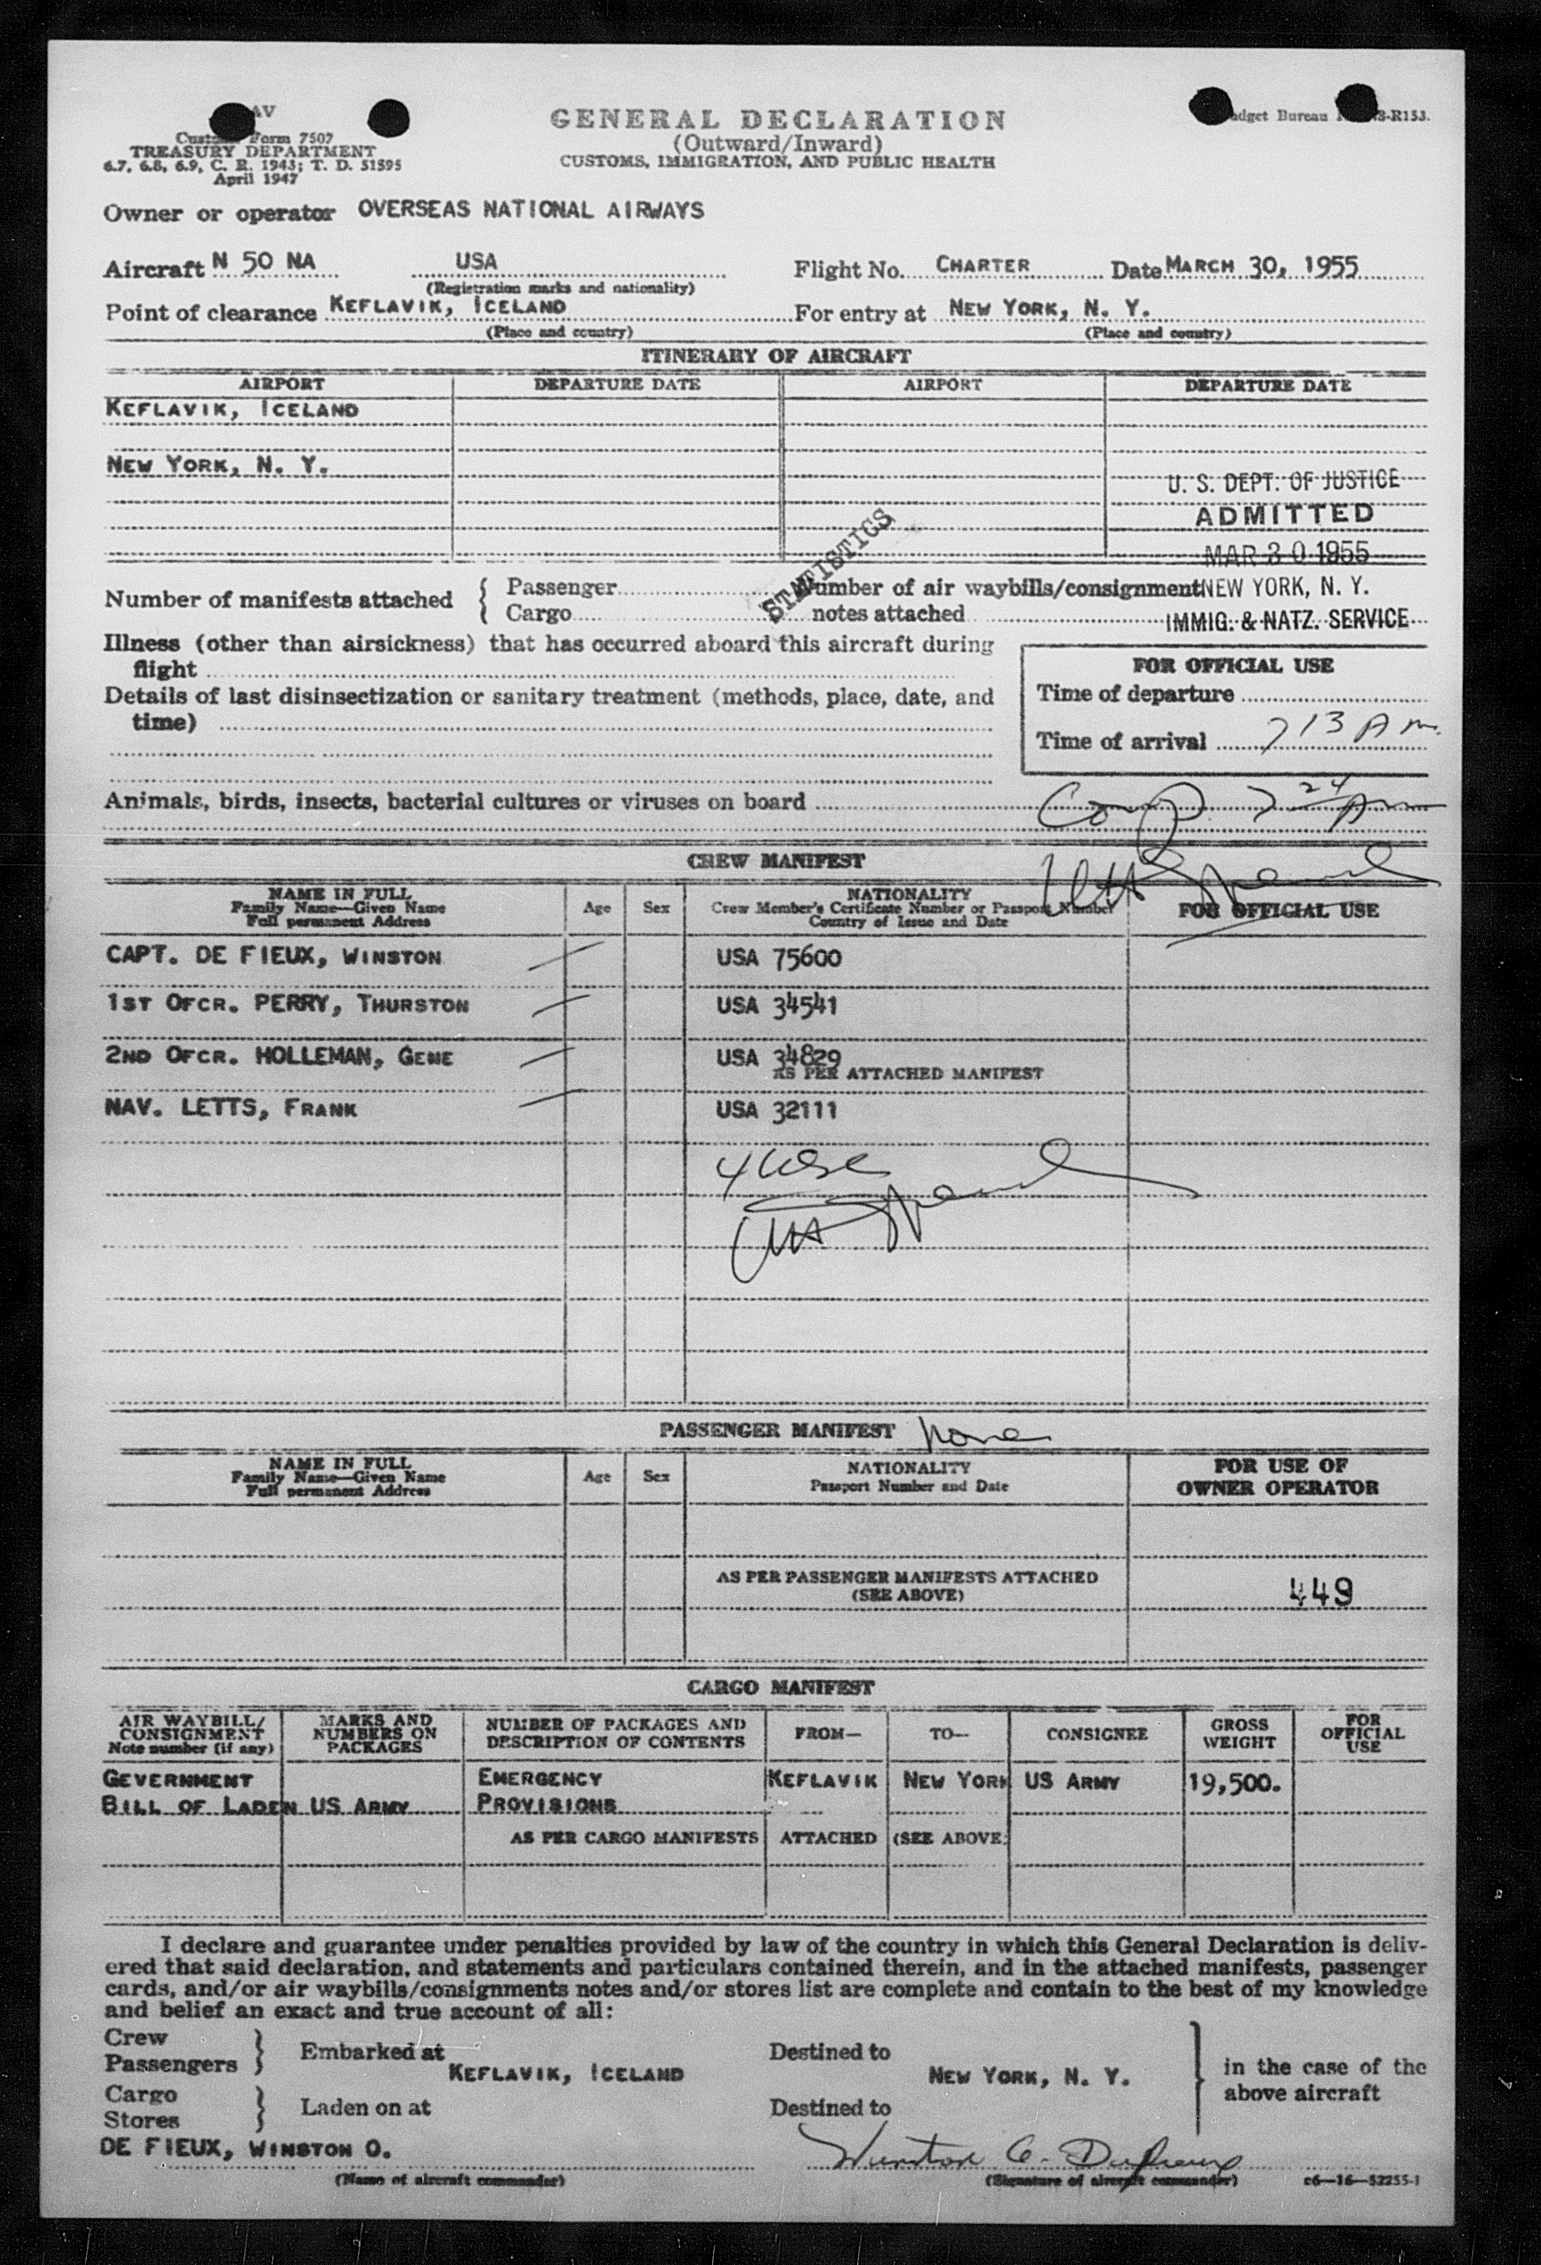 AV
Form 7507
TREASURY DEPARTMENT
6.7, 6.8, 6.9, C. R. 1943; T. D. 51595
April 1947
GENERAL DECLARATION
(Outward/Inward)
CUSTOMS, IMMIGRATION, AND PUBLIC HEALTH
Budget Bureau -R153.
Owner or operator OVERSEAS NATIONAL AIRWAYS
Aircraft N 50 NA USA Flight No. CHARTER Date MARCH 30, 1955
(Registration marks and nationality)
Point of clearance KEFLAVIK, ICELAND For entry at NEW YORK, N. Y.
(Place and country) (Place and country)
ITINERARY OF AIRCRAFT
AIRPORT DEPARTURE DATE AIRPORT DEPARTURE DATE
KEFLAVIK, ICELAND
NEW YORK, N. Y.
U. S. DEPT. OF JUSTICE
ADMITTED
MAR 30 1955
NEW YORK, N. Y.
IMMIG. & NATZ. SERVICE
STATISTICS
Number of manifests attached { Passenger
Cargo
Number of air waybills/consignment
notes attached
Illness (other than airsickness) that has occurred aboard this aircraft during
flight
Details of last disinsectization or sanitary treatment (methods, place, date, and
time)
FOR OFFICIAL USE
Time of departure
Time of arrival 713 Am.
Animals, birds, insects, bacterial cultures or viruses on board
Comp. 7 24 Am
CREW MANIFEST
NAME IN FULL
Family Name—Given Name
Full permanent Address
Age Sex
NATIONALITY
Crew Member's Certificate Number or Passport Number
Country of Issue and Date
FOR OFFICIAL USE
CAPT. DE FIEUX, WINSTON USA 75600
1ST OFCR. PERRY, THURSTON USA 34541
2ND OFCR. HOLLEMAN, GENE USA 34829
AS PER ATTACHED MANIFEST
NAV. LETTS, FRANK USA 32111
4 USC
PASSENGER MANIFEST None
NAME IN FULL
Family Name—Given Name
Full permanent Address
Age Sex
NATIONALITY
Passport Number and Date
FOR USE OF
OWNER OPERATOR
AS PER PASSENGER MANIFESTS ATTACHED
(SEE ABOVE)
449
CARGO MANIFEST
AIR WAYBILL/
CONSIGNMENT
Note number (if any)
MARKS AND
NUMBERS ON
PACKAGES
NUMBER OF PACKAGES AND
DESCRIPTION OF CONTENTS
FROM— TO— CONSIGNEE
GROSS
WEIGHT
FOR
OFFICIAL
USE
GEVERNMENT EMERGENCY KEFLAVIK NEW YORK US ARMY 19,500.
BILL OF LADEN US ARMY PROVISIONS
AS PER CARGO MANIFESTS ATTACHED (SEE ABOVE)
I declare and guarantee under penalties provided by law of the country in which this General Declaration is deliv-
ered that said declaration, and statements and particulars contained therein, and in the attached manifests, passenger
cards, and/or air waybills/consignments notes and/or stores list are complete and contain to the best of my knowledge
and belief an exact and true account of all:
Crew
Passengers } Embarked at KEFLAVIK, ICELAND Destined to NEW YORK, N. Y.
Cargo
Stores } Laden on at Destined to
} in the case of the
above aircraft
DE FIEUX, WINSTON O.
(Name of aircraft commander) (Signature of aircraft commander) c6—16—52255-1